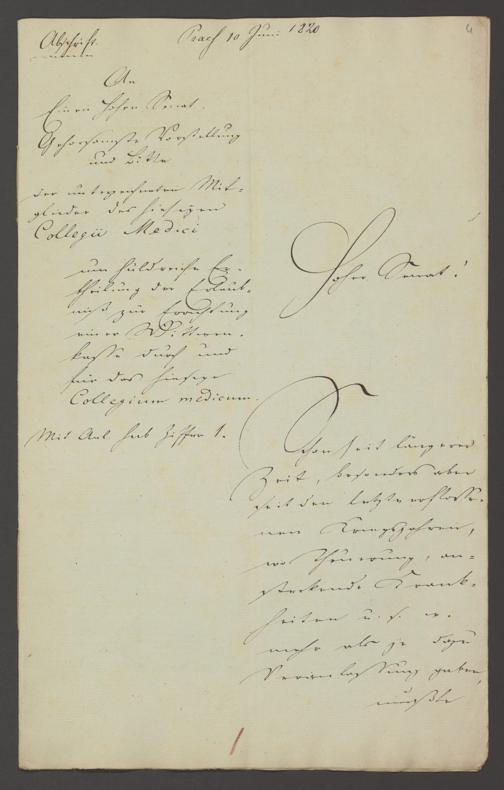 Abschrift.
10 Juni 1820
4
An
Einen Hohen Senat.
Gehorsamste Vorstellung
und Bitte
der unterzeichneten Mit-
glieder des hiesigen
Collegii Medici
um huldreiche Er-
theilung der Erlaub-
niß zur Errichtung
einer Wittwen-
kasse durch und
für das hiesige
Collegium medicum.
Mit Anl. sub Ziffer 1.
Hoher Senat!
Schon seit längerer
Zeit, besonders aber
seit den letzt verflosse-
nen Kriegsjahren,
wo Theuerung, an-
steckende Krank-
heiten u. s. w.
mehr als je dazu
Veranlassung gaben,
mußte